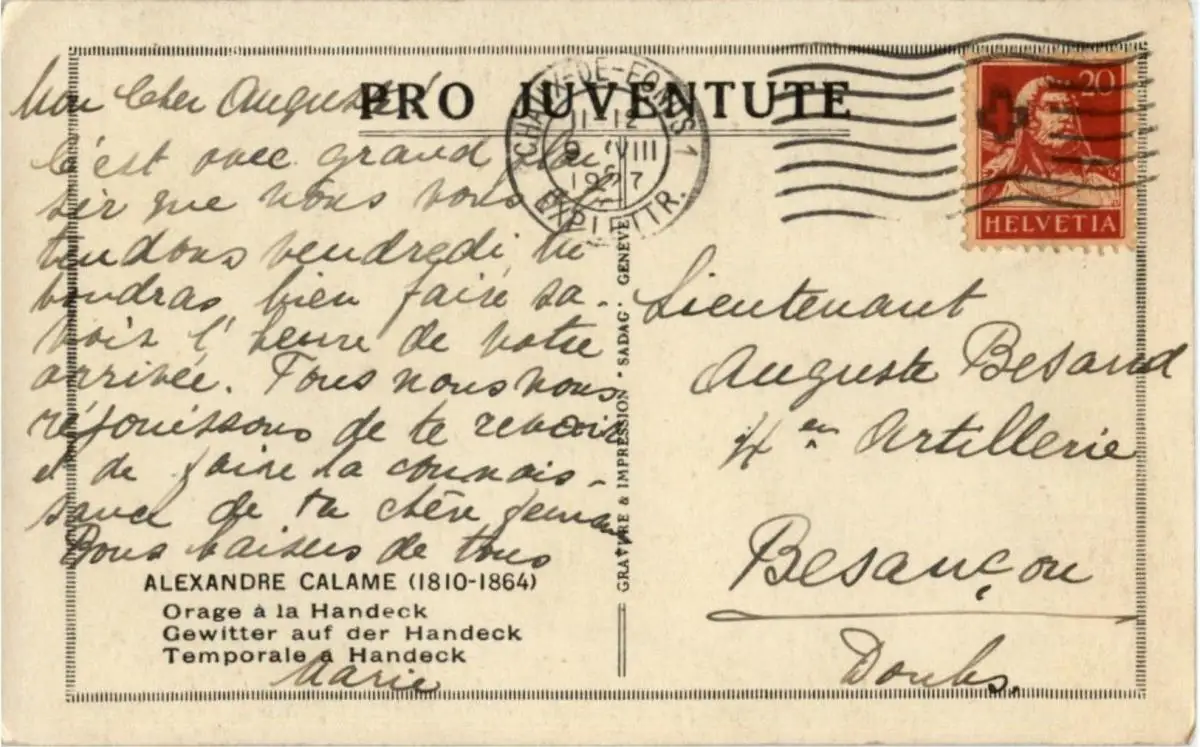 PRO JUVENTUTE
Mon Cher Auguste!
C'est avec grand plai
sir que nous vous
tendons vendredi, tu
voudras bien faire sa-
voir l'heure de votre
arrivée. Tous nous nous
réjouissons de te revoir
et de faire la connais-
sance de ta chère femme
Bons baisers de tous
Marie
ALEXANDRE CALAME (1810-1864)
Orage à la Handeck
Gewitter auf der Handeck
Temporale a Handeck
GRAVURE & IMPRESSION * SADAG · GENÈVE
CHAUX-DE-FONDS 1
11-12
9. VIII
1927
EXP. LETTR.
20
HELVETIA
Lieutenant
Auguste Besand
4e en Artillerie
Besançon
Doubs.